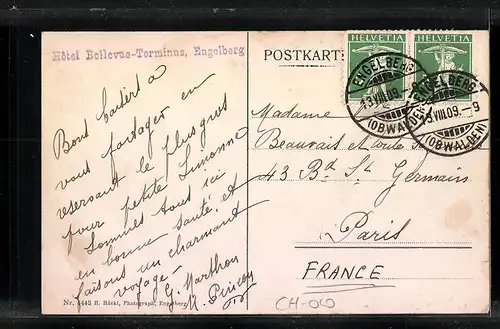 Hôtel Bellevue-Terminus, Engelberg
POSTKARTE
HELVETIA
HELVETIA
ENGELBERG
13.VIII.09.
(OBWALDEN)
ENGELBERG
13.VIII.09.-9
(OBWALDEN)
Bons baisers à
vous partager en
réservant le plus gros
pour petite Simonne
Sommes tous ici
en bonne santé, et
faisons un charmant
voyage-
G. Marthon
M.
Madame
Beauvais et toute
43 Bd St Germain
Paris
FRANCE
Nr. 4443 R. Räcki, Photograph, Engelberg
CH-OO